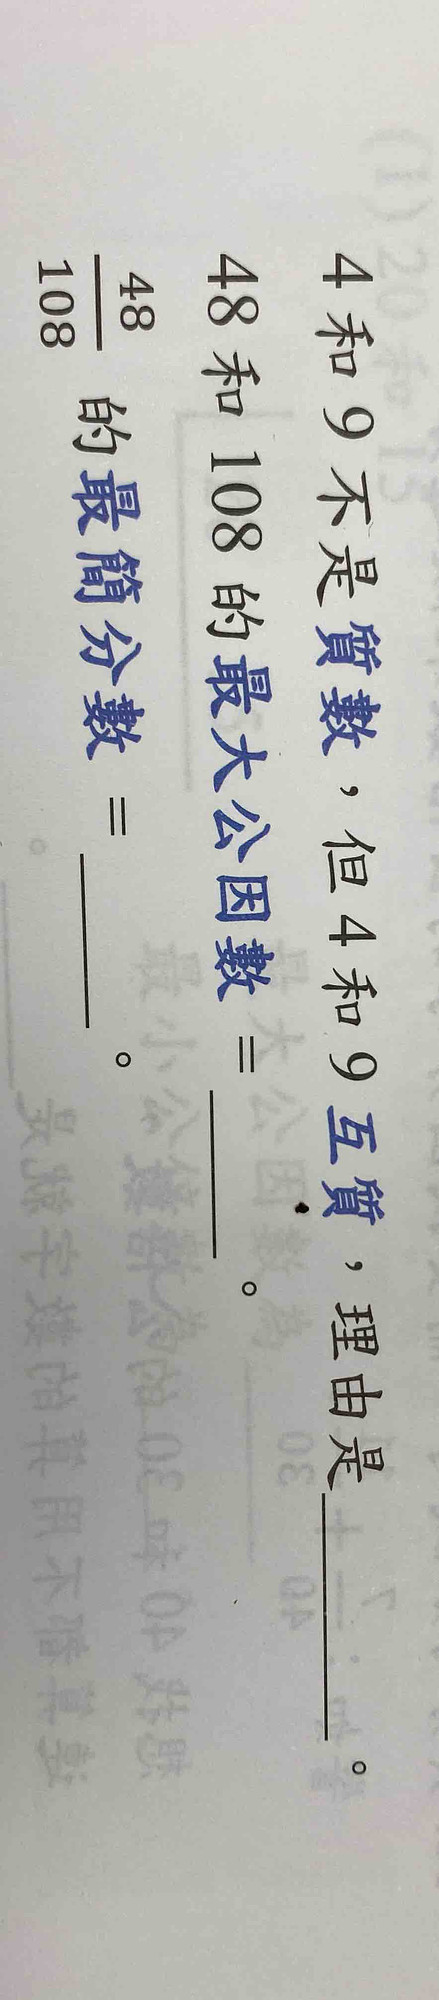 4 和 9 不是質數，但 4 和 9 互質，理由是＿＿＿＿＿。
48 和 108 的最大公因數 = ＿＿＿＿。
48/108 的最簡分數 = ＿＿＿＿。